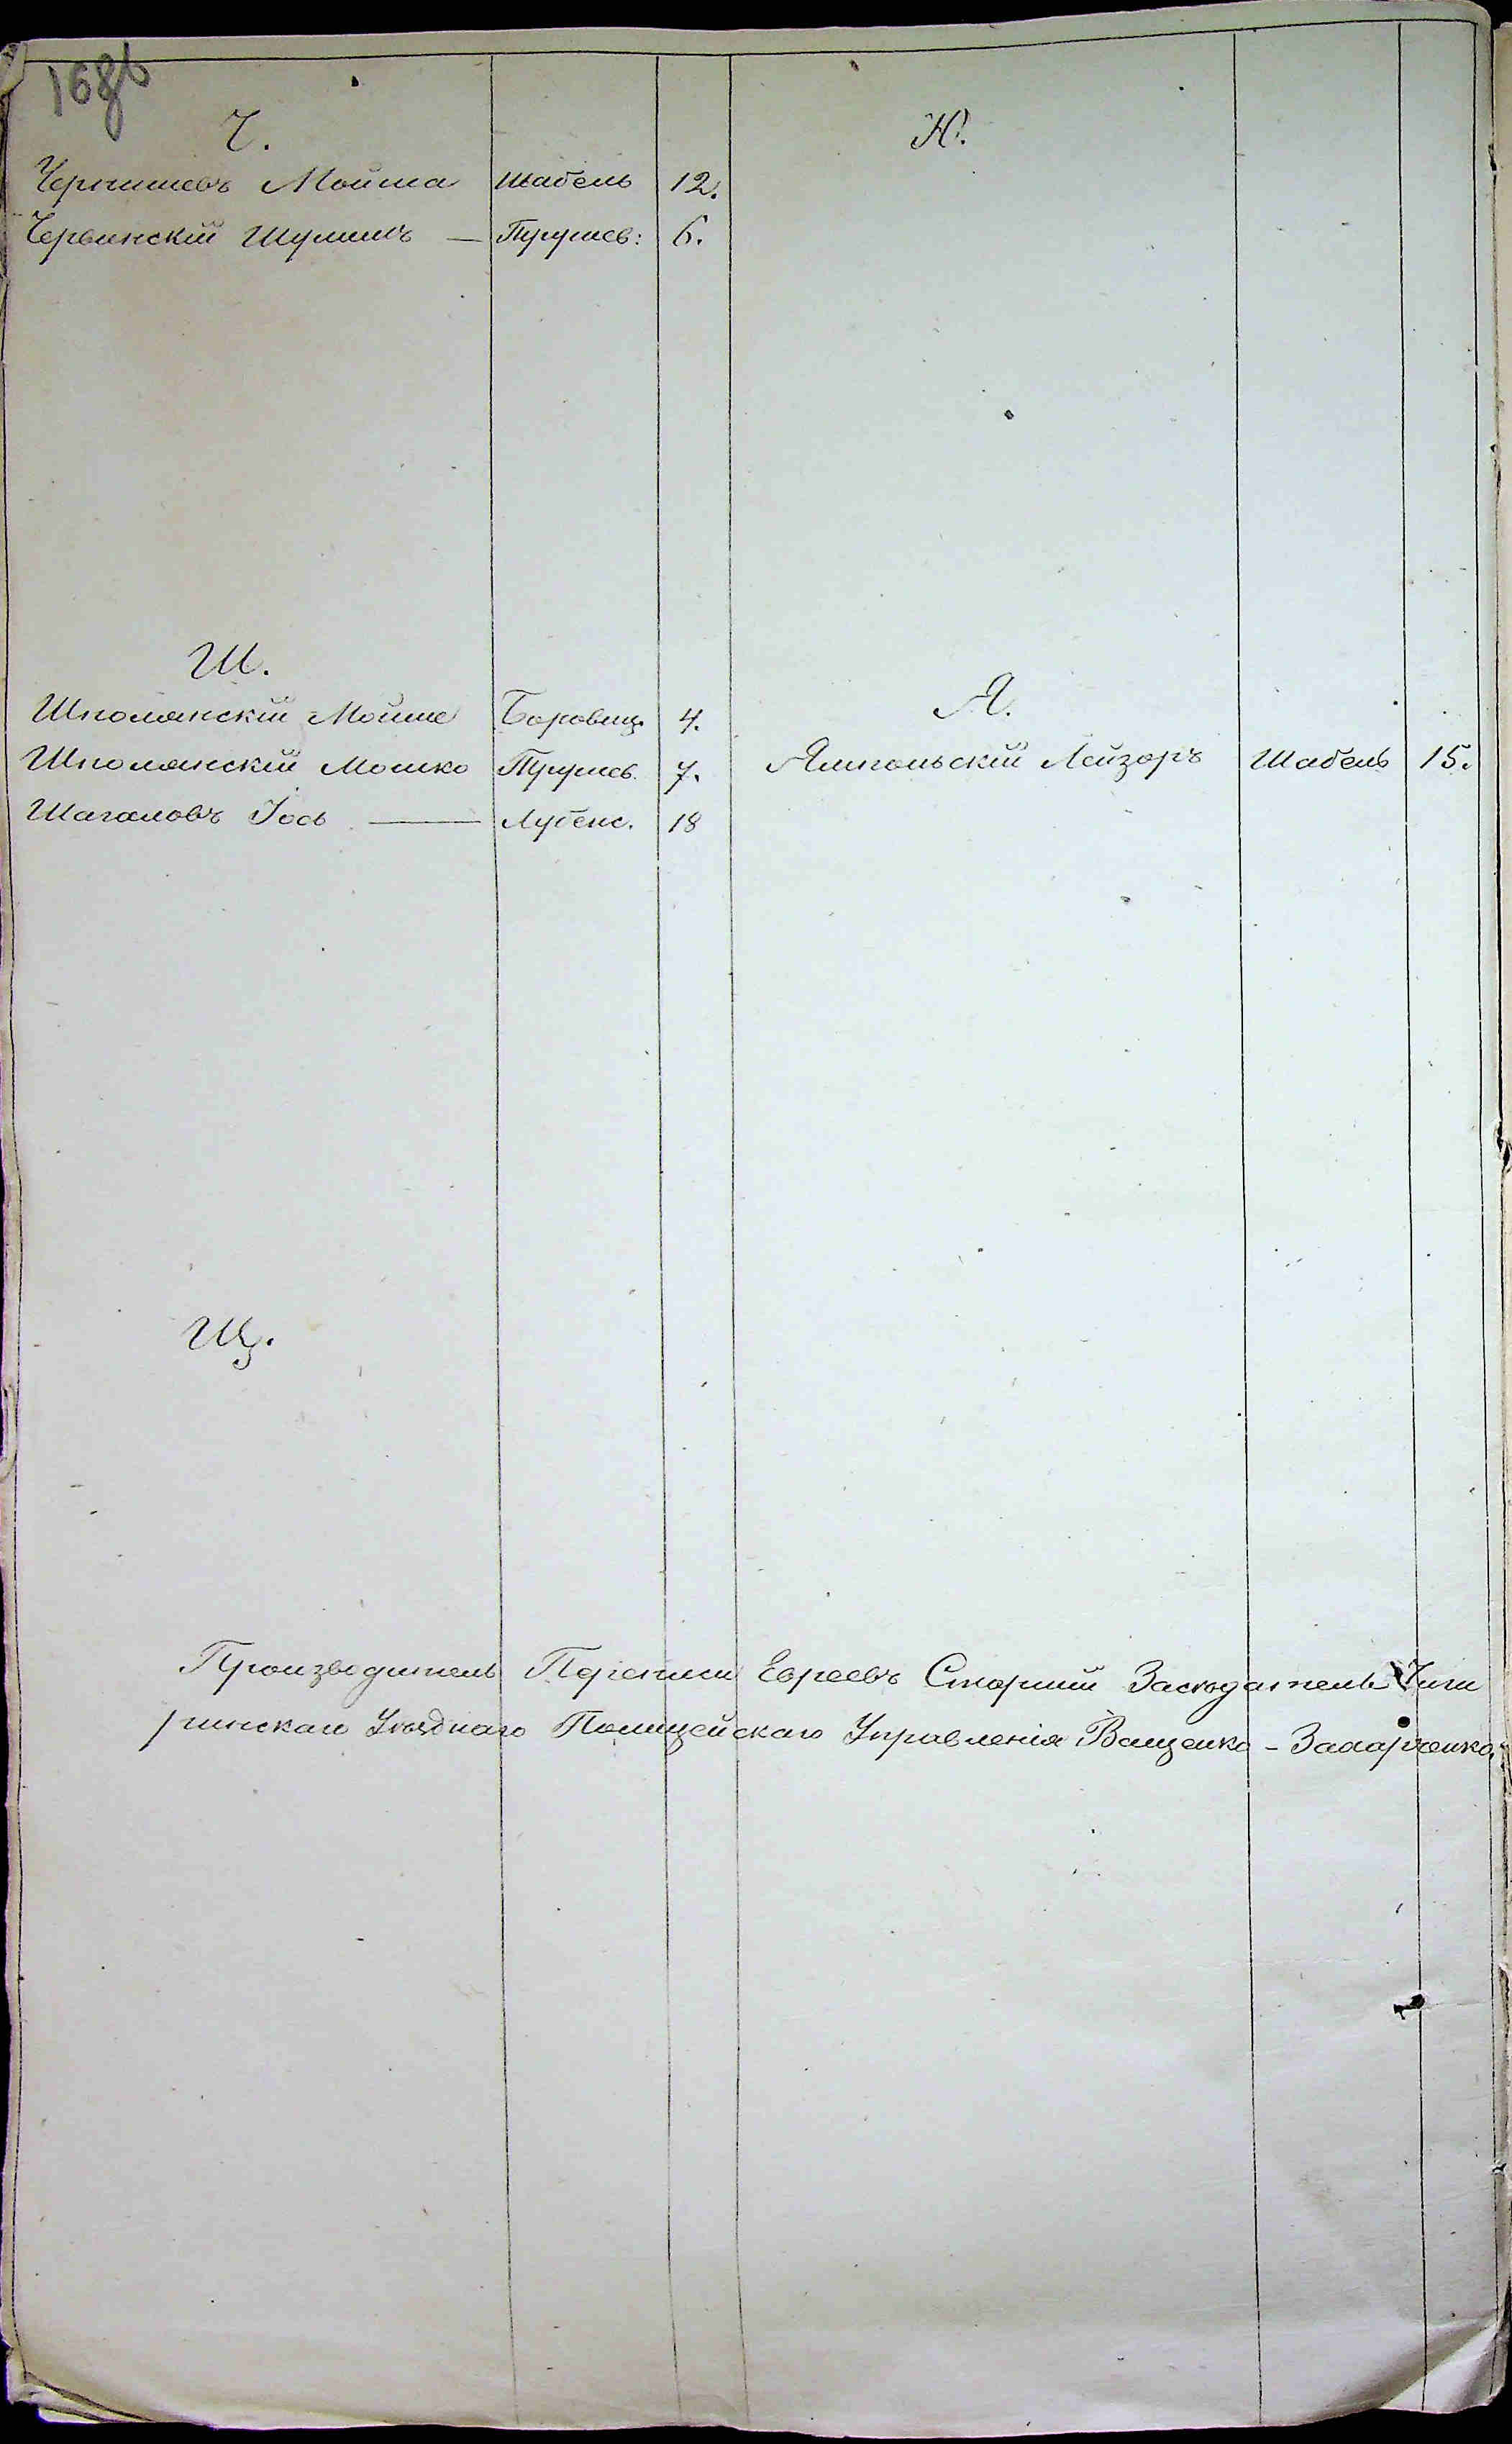 168б
Ч.
Чернишевъ Мойша Шабель 12.
Червинскій Шулимъ — Трушев: 6.
Ш.
Шполянскій Мойше Боровиц. 4.
Шполянскій Мошко Трушев. 7.
Шагаловъ Іось — Лубенс. 18
Щ.
Ю.
Я.
Ямпольскій Лейзоръ Шабель 15.
Производитель Переписи Евреевъ Старшій Засѣдатель Чиги
ринскаго Уѣзднаго Полицейскаго Управленія Ващенко - Захарченко.